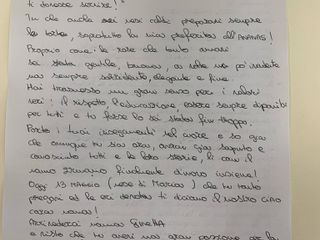 ti dovesse servire!
In che anche nei nei caldi preparavi sempre
le torte, soprattutto la mia preferita all'ANANAS!
Proprio come le rose che tanto amavi
sei stata gentile, buona, a volte un po' ribelle
ma sempre sorridente, elegante e fine.
Hai trasmesso un gran senso per i valori
veri: il rispetto, l'educazione, essere sempre disponibile
per tutti e tu forse lo sei stata fin troppo.
Porto i tuoi insegnamenti nel cuore e so già
che ovunque tu sia ora, avrai già saputo e
conosciuto tutti e le loro storie, lì con il
nonno Romano finalmente di nuovo insieme!
Oggi 13 MAGGIO (mese di Maria) che tu tanto
pregavi ed le eri devota ti diciamo il nostro ciao
cara nonna!
Arrivederci nonna Ginetta
e visto che tu avevi una gran passione per la